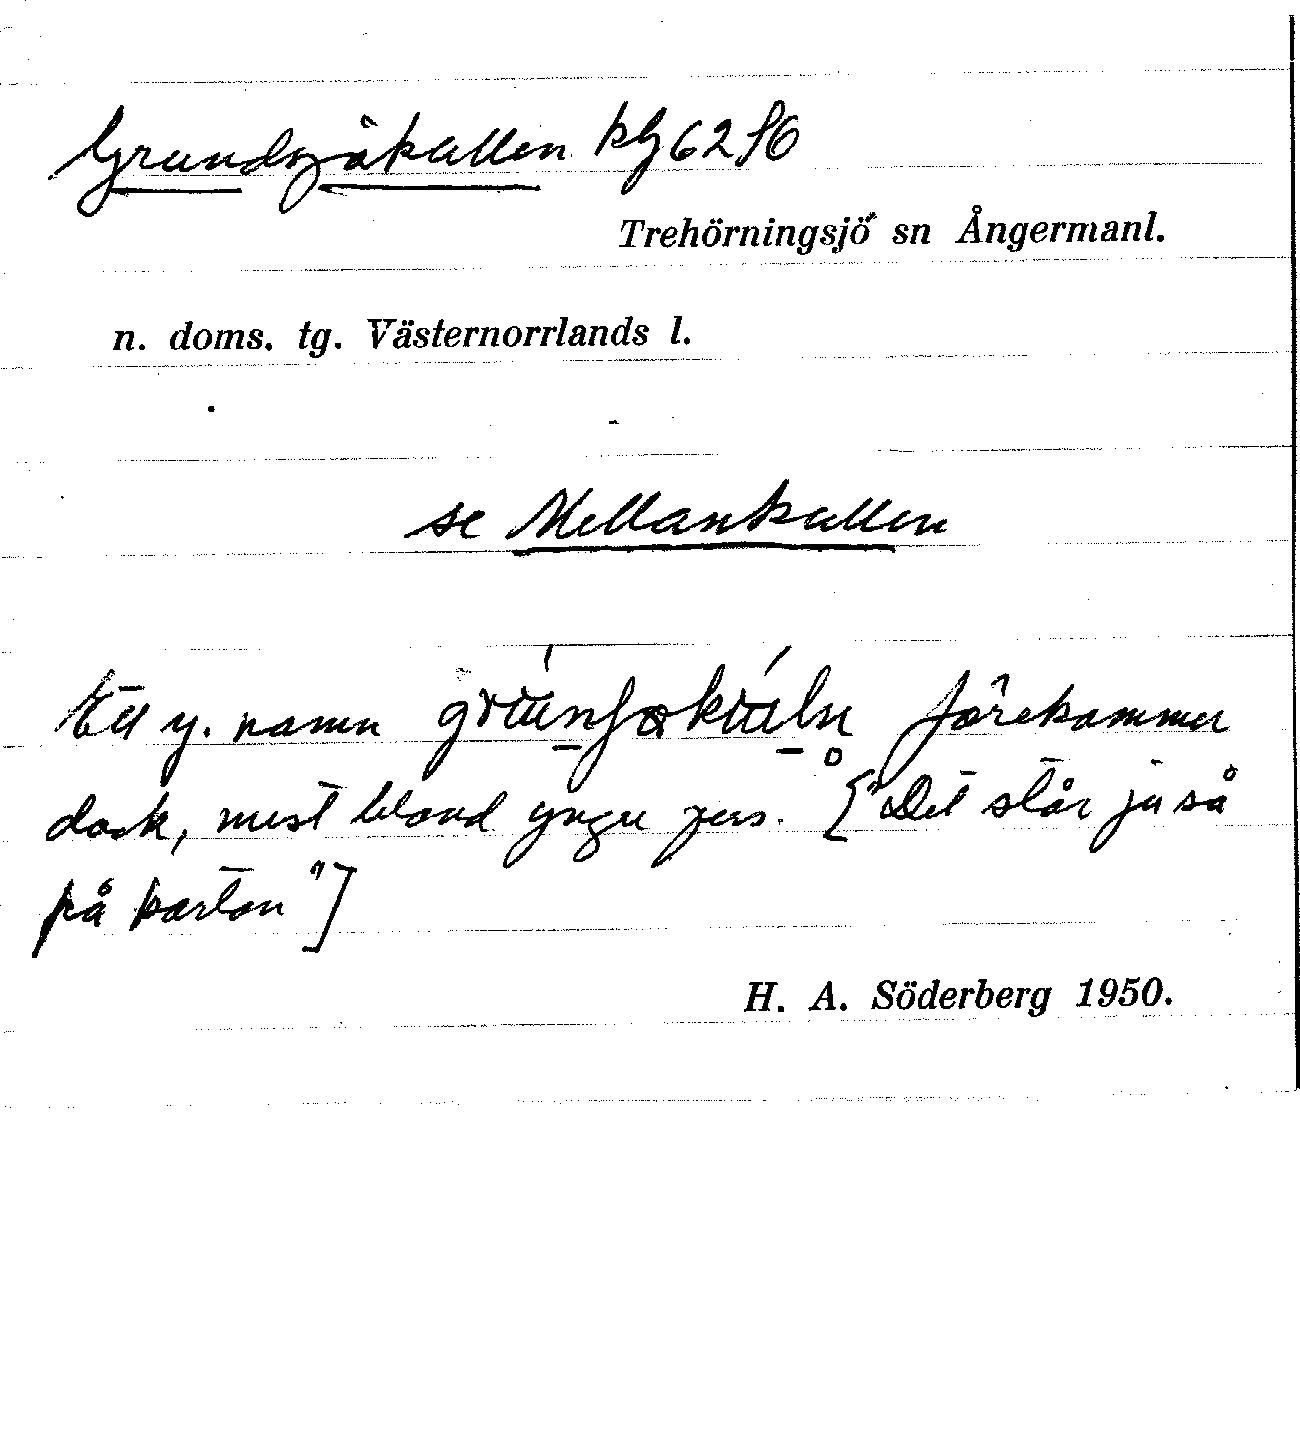 Grundsjökullen kg 62 f6
Trehörningsjö sn Ångermanl.
n. doms. tg. Västernorrlands l.
se Mellankullen
Ett y. namn förekommer
dock, mest bland yngre pers. ["Det står ju så
på kartan"]
H. A. Söderberg 1950.